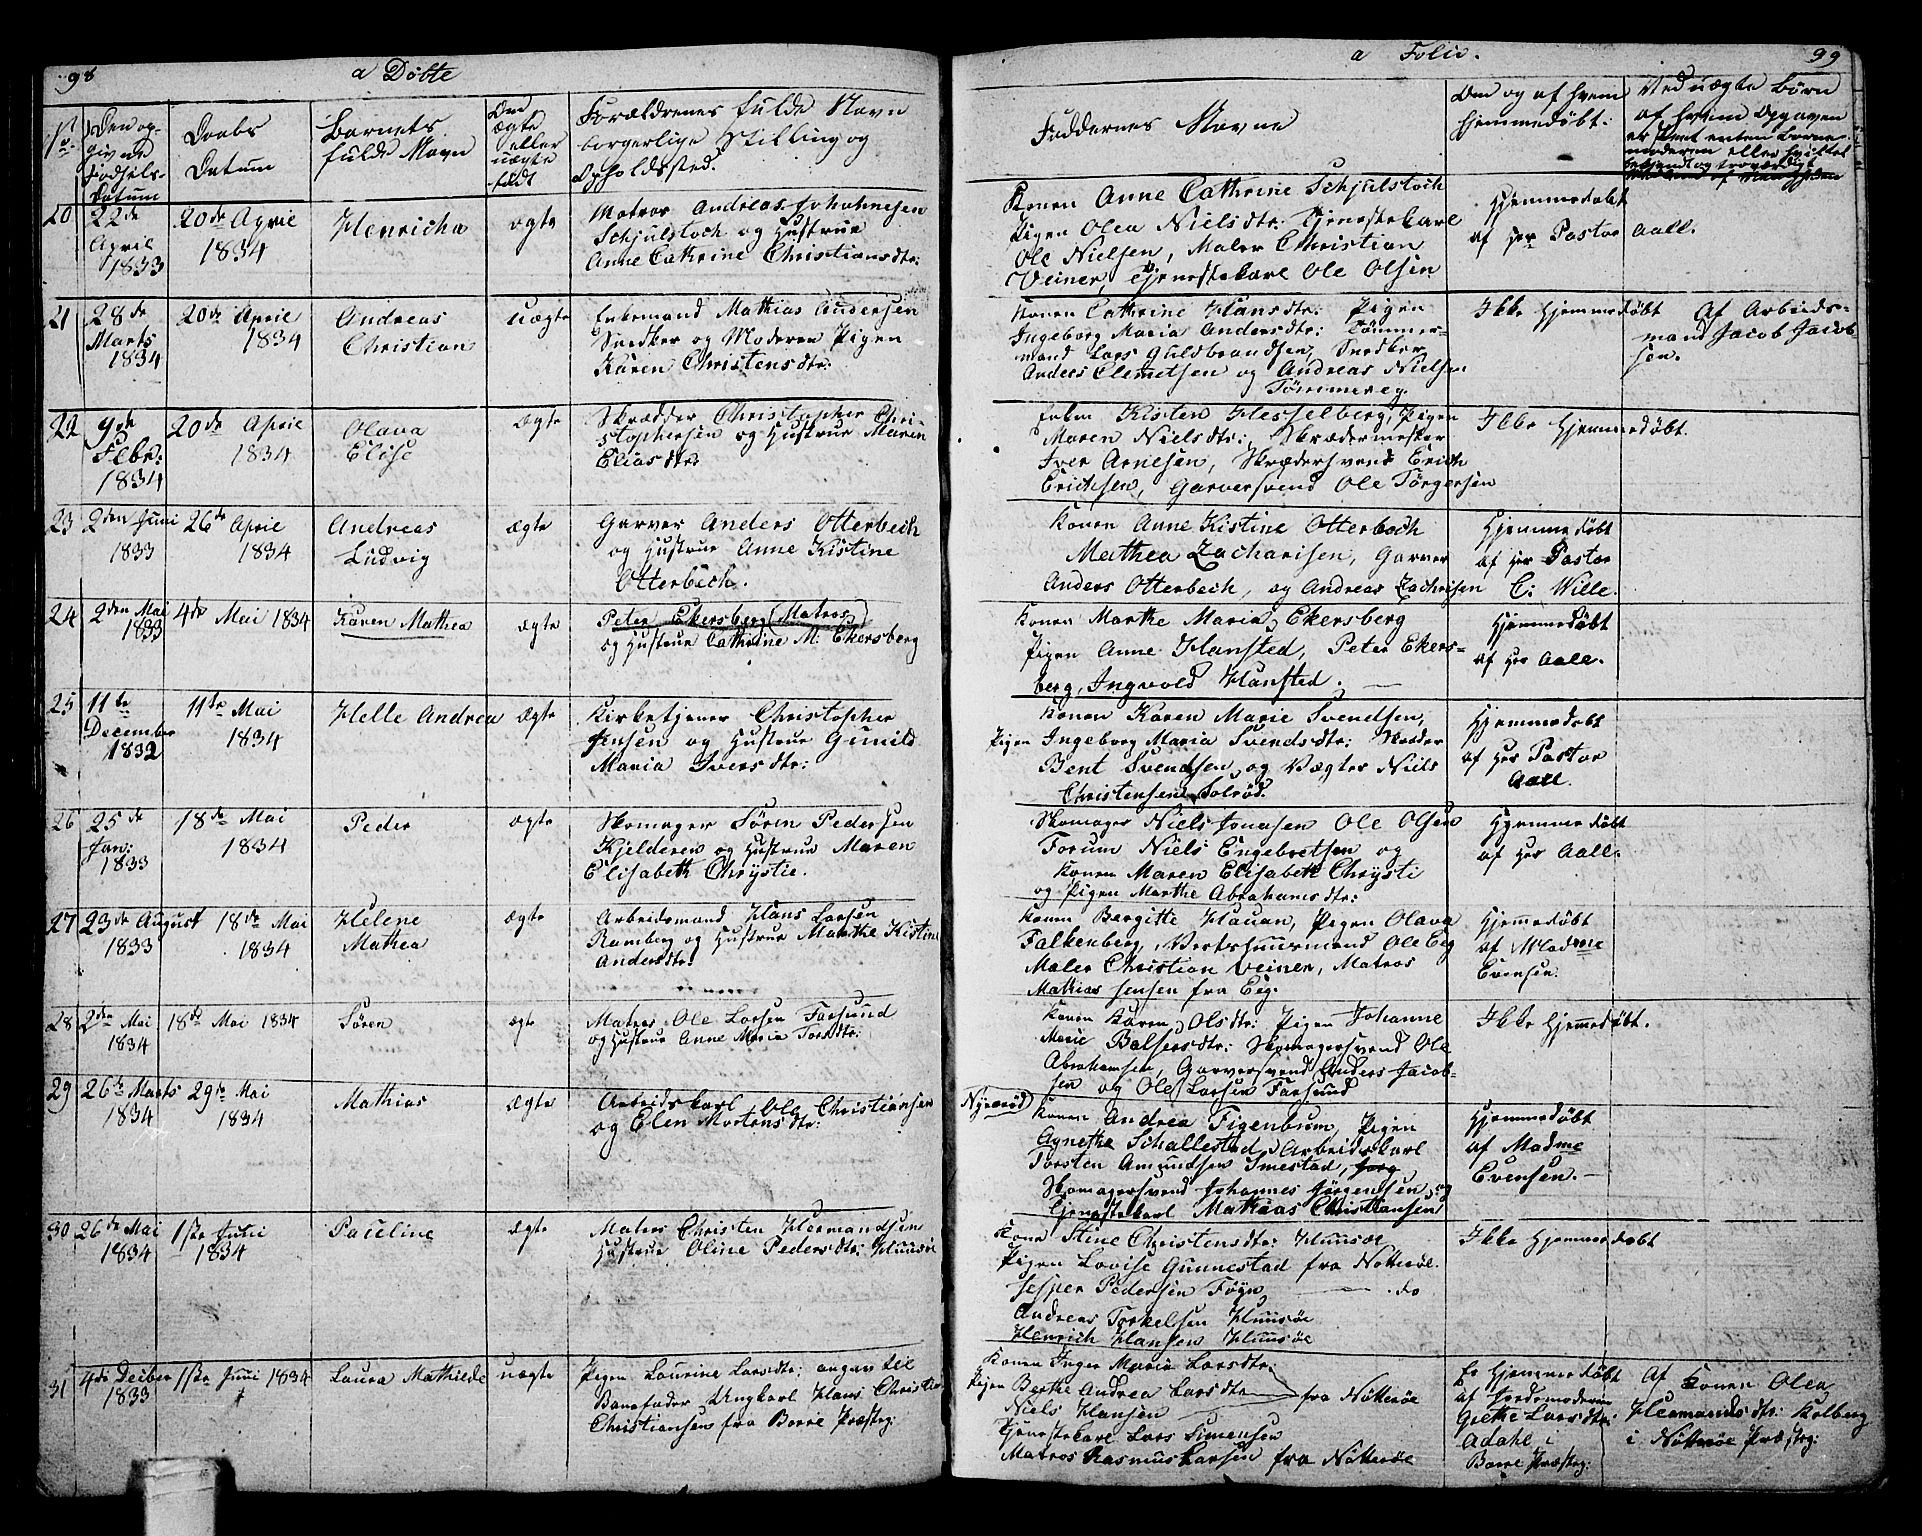 98
a Døbte
No.
Den op-
givne
Fødsels-
Datum
Daabs
Datum
Barnets
fulde Navn
Om
ægte
eller
uægte
født
Forældrenes fulde Navn
borgerlige Stilling og
Opholdssted.
20
22de
April
1833
20de April
1834
Henricha
ægte
Matros Andreas Johannesen
Schjulstoch og Hustrue
Anne Cathrine Christiansdtr:
21
28de
Marts
1834
20de April
1834
Andreas
Christian
uægte
Enkemand Mathias Andersen
Snedker og Moderen Pigen
Karen Christensdtr:
22
9de
Febr:
1834
20de April
1834
Olava
Elise
ægte
Skrædder Christopher Chri-
stophersen og Hustrue Maren
Eliasdtr:
23
2den Juni
1833
26de April
1834
Andreas
Ludvig
ægte
Garver Anders Otterbech
og Hustrue Anne Kistine
Otterbech.
24
2den Mai
1833
4de Mai 1834
Karen Mathea
ægte
Peter Ekersberg (Matros)
og Hustrue Cathrine M: Ekersberg
25
11te
December
1832
11te Mai
1834
Helle Andrea
ægte
Kirketjener Christopher
Jensen og Hustrue Gunild
Maria Iversdtr:
26
25de
Jan:
1833
18de Mai
1834
Peder
ægte
Skomager Søren Pedersen
Kjelderen og Hustrue Maren
Elisabeth Chrystie.
27
23de August
1833
18de Mai
1834
Helene
Mathea
ægte
Arbeidsmand Hans Larsen
Ramberg og Hustrue Marthe Kistine
Andersdtr:
28
2den Mai
1834
18de Mai 1834
Søren
ægte
Matros Ole Larsen Farsund
og Hustrue Anne Maria Torsdtr:
29
26de Marts
1834
29de Mai
1834
Mathias
ægte
Arbeidskarl Ole Christiansen
og Elen Mortensdtr:
30
26de Mai
1834
1ste Juni
1834
Pauline
ægte
Matros Christen Hermandsen
Hustrue Oline Pedersdtr: Huusøe
31
4de Deiber
1833
1ste Juni 1834
Laura Mathilde
uægte
Pigen Laurine Larsdtr: angav til
Barnefader Ungkarl Hans Christian
Christiansen fra Borre Præstg:
a Folie.
99
Faddernes Navne
Om og af hvem
Hjemmedøbt:
Ved uægte Børn
af hvem Opgaven
er skeet enten Barne-
moderen eller hvilket
bekjendt og troværdigt
Konen Anne Cathrine Schjulstoch
Pigen Olea Nielsdtr: Tjenestekarl
Ole Nielsen, Maler Christian
Veiner, Tjenestekarl Ole Olsen
Hjemmedøbt
af Hr Pastor Aall.
Konen Cathrine Hansdtr: Pigen
Ingeborg Maria Andersdtr: Tømmer-
mand Lars Guldbrandsen, Snedker
Anders Clemetsen og Andreas Nielsen
Tømmereg.
Ikke Hjemmedøbt
Af Arbeids-
mand Jacob Jacob-
sen.
Enken Kisten Hesselberg, Pigen
Maren Nielsdtr:, Skrædermester
Iver Arnesen, Skrædersvend Erich
Erichsen, Garversvend Ole Törgersen
Ikke Hjemmedøbt.
Konen Anne Kistine Otterbech
Mathea Zacharisen, Garver
Anders Otterbech, og Andreas Zachrisen
Hjemmedøbt
af Hr Pastor
C. Wille.
Konen Marthe Maria Ekersberg
Pigen Anne Hansted, Peter Ekers-
berg, Ingvold Hansted.
Hjemmedøbt
af Hr Aall.
Konen Karen Marie Svendsen,
Pigen Ingeborg Maria Svendsdtr: Skræder
Bent Svendsen og Vægter Niels
Christensen Solrød.
Hjemmedøbt
af Hr Pastor
Aall.
Skomager Niels Jonasen Ole Olsen
Forum Niels Engebretsen og
Konen Maren Elisabeth Chrysti
og Pigen Marthe Abrahamsdtr:
Hjemmedøbt
af Hr Aall.
Konen Bergitte Hauan, Pigen Olava
Falkenberg, Vertshuusmand Ole Eeg
Maler Christian Veiner, Matros
Mathias Jensen fra Eeg.
Hjemmedøbt
af Madme
Evensen.
Konen Karen Olsdtr: Pigen Johanne
Marie Balsersdtr: Skomagersvend Ole
Abrahamsen, Garversvend Anders Jacob-
sen og Ole Larsen Farsund
Ikke Hjemmedøbt.
Nyerød
Konen Andrea Figenbum, Pigen
Agnethe Schallestad, Arbeidskarl
Torsten Amundsen Smestad,
Skomagersvend Johannes Jörgensen, og
Tjenestekarl Mathias Christiansen
Hjemmedøbt
af Madme
Evensen.
Kone Stine Christensdtr: Huusøe
Pigen Lovise Gunnestad fra Nøtterøe.
Jesper Pedersen Føyn — do
Andreas Torkelsen Huusøe
Henrich Hansen Huusøe
Ikke Hjemmedøbt
Konen Inger Maria Larsdtr:
Pigen Berthe Andrea Larsdtr fra Nøtterøe
Niels Hansen
Tjenestekarl Lars Simensen
Matros Rasmus Larsen fra Nøtterøe
Er Hjemmedøbt
af Jordemoderen
Grethe Larsdtr:
Adahl i
Borre Præstg:
Af Konen Olea
Hermandsdtr: Kolberg
i Nøtterøe Præstg: